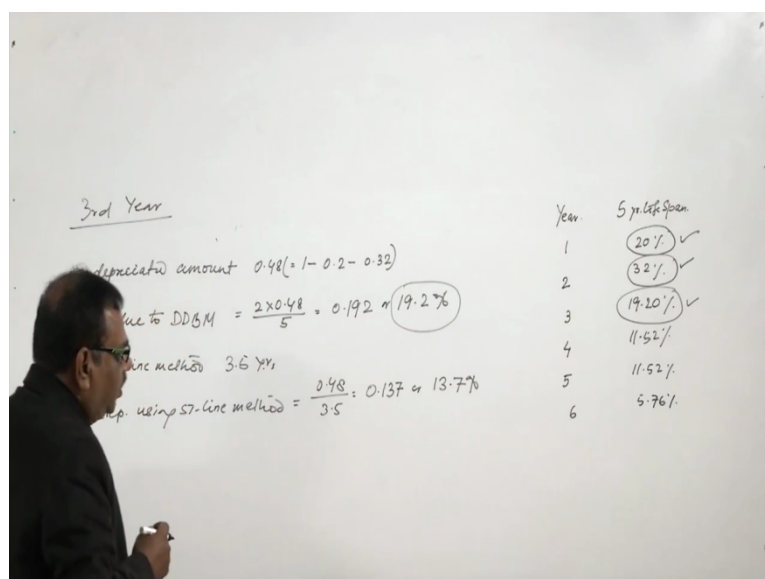 3rd Year
depreciated amount 0.48(= 1- 0.2- 0.32)
ue to DDBM = 2x0.48/5 = 0.192 or 19.2%
line method 3.5 yrs
p. using ST-line method = 0.48/3.5 = 0.137 or 13.7%
Year 5 yr. Life Span.
1 20% ✓
2 32% ✓
3 19.20% ✓
4 11.52%
5 11.52%
6 5.76%